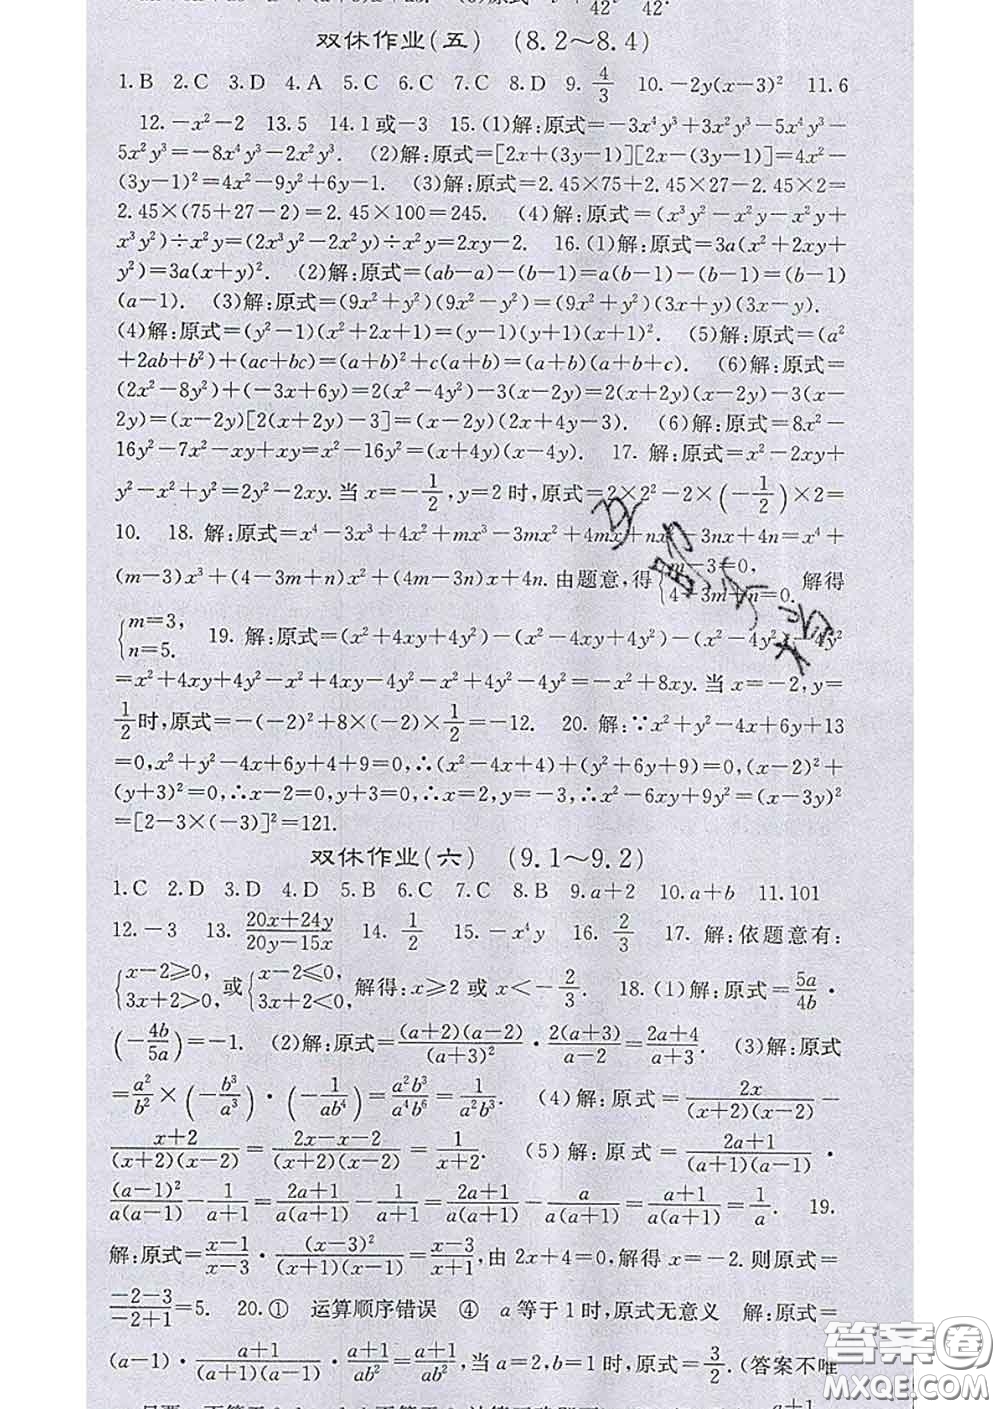 双休作业(五) (8.2～8.4)
1.B 2.C 3.D 4.A 5.C 6.C 7.C 8.D 9. 4/3 10.－2y(x－3)² 11.6
12.－x²－2 13.5 14.1或－3 15.(1)解:原式=－3x⁴y³+3x²y³－5x⁴y³－
5x²y³=－8x⁴y³－2x²y³. (2)解:原式=[2x+(3y－1)][2x－(3y－1)]=4x²－
(3y－1)²=4x²－9y²+6y－1. (3)解:原式=2.45×75+2.45×27－2.45×2=
2.45×(75+27－2)=2.45×100=245. (4)解:原式=(x³y²－x²y－x²y+
x³y²)÷x²y=(2x³y²－2x²y)÷x²y=2xy－2. 16.(1)解:原式=3a(x²+2xy+
y²)=3a(x+y)². (2)解:原式=(ab－a)－(b－1)=a(b－1)－(b－1)=(b－1)
(a－1). (3)解:原式=(9x²+y²)(9x²－y²)=(9x²+y²)(3x+y)(3x－y).
(4)解:原式=(y²－1)(x²+2x+1)=(y－1)(y+1)(x+1)². (5)解:原式=(a²
+2ab+b²)+(ac+bc)=(a+b)²+c(a+b)=(a+b)(a+b+c). (6)解:原式=
(2x²－8y²)+(－3x+6y)=2(x²－4y²)－3(x－2y)=2(x+2y)(x－2y)－3(x－
2y)=(x－2y)[2(x+2y)－3]=(x－2y)(2x+4y－3). (6)解:原式=8x²－
16y²－7x²－xy+xy=x²－16y²=(x+4y)(x－4y). 17. 解:原式=x²－2xy+
y²－x²+y²=2y²－2xy.当x=－1/2,y=2时,原式=2×2²－2×(－1/2)×2=
10. 18. 解:原式=x⁴－3x³+4x²+mx³－3mx²+4mx+nx²－3nx+4n=x⁴+
(m－3)x³+(4－3m+n)x²+(4m－3n)x+4n.由题意,得{m－3=0, 4－3m+n=0. 解得
{m=3, n=5. 19. 解:原式=(x²+4xy+4y²)－(x²－4xy+4y²)－(x²－4y²)－4y²
=x²+4xy+4y²－x²+4xy－4y²－x²+4y²－4y²=－x²+8xy.当x=－2,y=
1/2时,原式=－(－2)²+8×(－2)×1/2=－12. 20. 解:∵x²+y²－4x+6y+13
=0,x²+y²－4x+6y+4+9=0,∴(x²－4x+4)+(y²+6y+9)=0,(x－2)²+
(y+3)²=0,∴x－2=0,y+3=0,∴x=2,y=－3,∴x²－6xy+9y²=(x－3y)²
=[2－3×(－3)]²=121.
双休作业(六) (9.1～9.2)
1.C 2.D 3.D 4.D 5.B 6.C 7.C 8.B 9.a+2 10.a+b 11.101
12.－3 13. (20x+24y)/(20y－15x) 14. 1/2 15.－x⁴y 16. 2/3 17. 解:依题意有:
{x－2≥0, 3x+2>0, 或{x－2≤0, 3x+2<0, 解得:x≥2或x<－2/3. 18.(1)解:原式=5a/4b·
(－4b/5a)=－1. (2)解:原式=(a+2)(a－2)/(a+3)²·2(a+3)/(a－2)=(2a+4)/(a+3). (3)解:原式
=a²/b²×(－b³/a³)·(－1/ab⁴)=a²b³/a⁴b⁶=1/a²b³. (4)解:原式=2x/(x+2)(x－2)－
(x+2)/(x+2)(x－2)=(2x－x－2)/(x+2)(x－2)=1/(x+2). (5)解:原式=(2a+1)/(a+1)(a－1)·
(a－1)²/a(a－1)－1/(a+1)=(2a+1)/a(a+1)－1/(a+1)=(2a+1)/a(a+1)－a/a(a+1)=(a+1)/a(a+1)=1/a. 19.
解:原式=(x－1)/(x－3)·(x－3)²/(x+1)(x－1)=(x－3)/(x+1),由2x+4=0,解得x=－2.则原式=
(－2－3)/(－2+1)=5. 20.① 运算顺序错误 ④ a等于1时,原式无意义 解:原式=
(a－1)·(a+1)/(a+1)(a－1)·(a+1)/ab²=(a+1)/ab²,当a=2,b=1时,原式=3/2.(答案不唯
答案圈
MXQE.COM